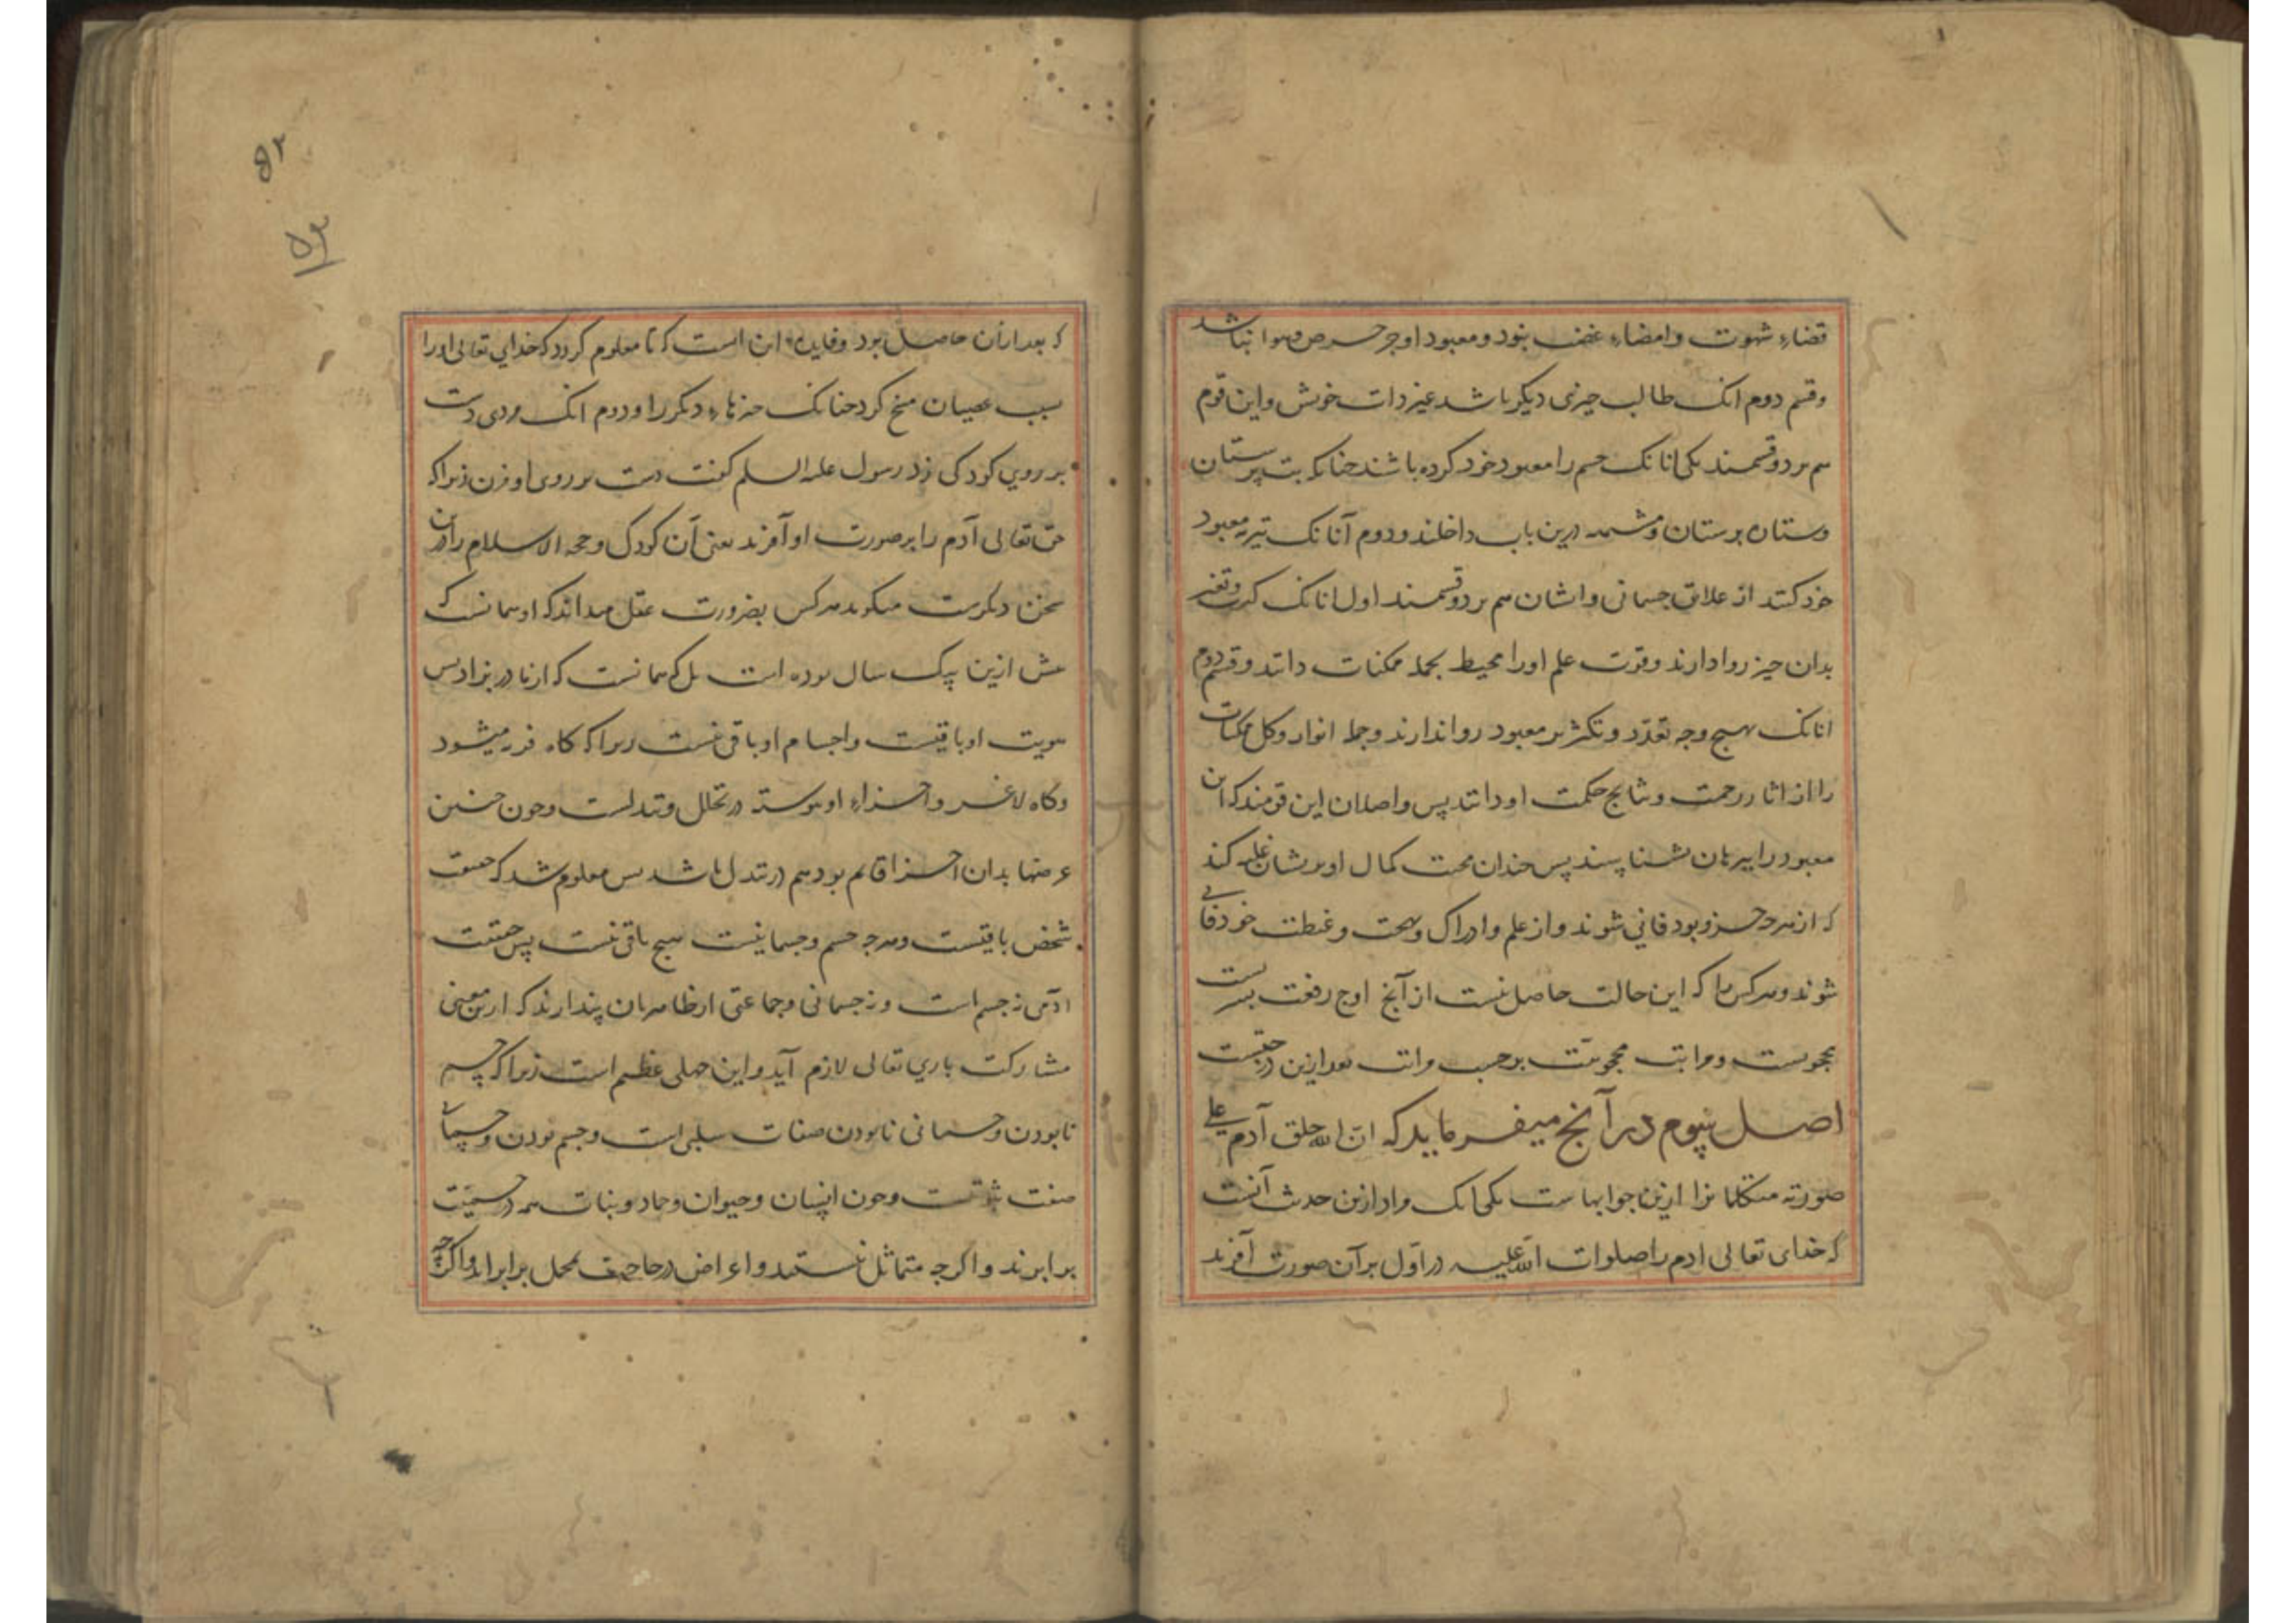 قضاء شهوت وامضاء غضب نبود ومعبود او جز حرص وهوا نباشد
وقسم دوم انک طالب چیزی دیکر باشد غیر ذات خویش واین قوم
هم بر دو قسمند یکی انانک جسم را معبود خود کرده باشند چنانکه بت پرستان
وستاره پرستان ومشبهه درین باب داخلند ودوم آنانک تبریه معبود
خود کنند از علایق جسمانی وایشان هم بر دو قسمند اول انانک کثرت وتغیر
بدان چیز روا دارند وقوت علم او را محیط بجمله ممکنات دانند وقسم دوم
انانک بهیچ وجه تعدد وتکثر بر معبود روا ندارند وجمله انوار وکل ممکنات
را از اثار رحمت ونتایج حکمت او دانند پس واصلان این قومند که این
معبود را ببرهان بشناسند پس چندان محبت کمال او بریشان غلبه کند
که از هرچه جز او بود فانی شوند واز علم وادراک وبهجت وغبطت خود فانی
شوند وهر کس را که این حالت حاصل نیست از آنج اوج رفعت بشریست
محجوبست ومراتب محجوبیت برحسب مراتب بعد ازین درجتست
اصل سیوم در آنج میفرماید که ان الله خلق آدم علی
صورته متکلمانرا ازین جوابهاست یکی انک مراد ازین حدیث آنست
که خدای تعالی ادم را صلوات الله علیه در اول بر آن صورت آفرید
که بعد ازان حاصل بود وفایده این است که تا معلوم کردد که خدای تعالی او را
بسبب عصیان مسخ نکرد چنانک چیزهاء دیکر را ودوم انک مردی دست
بر روی کودکی زد رسول علیه السلم کفت دست بر روی او مزن زیرا که
حق تعالی آدم را بر صورت او آفرید یعنی آن کودک وحجة الاسلام را درین
سخن دیکرست میکوید هر کس بضرورت عقل میداند که او همانست که
پیش ازین بیک سال بوده است بل که همانست که از مادر بزاد پس
هویت او باقیست واجسام او باقی نیست زیرا که کاه فربه میشود
وکاه لاغر واجزاء او پیوسته در تحلل وتبدلست وچون چنین
عرضها بدان اجزا قایم بود هم در تبدل باشد پس معلوم شد که حقیقت
شخص باقیست وهرچه جسم وجسمانیست هیچ باقی نیست پس حقیقت
ادمی نه جسم است ونه جسمانی وجماعتی از ظاهریان پندارند که ازین معنی
مشارکت باری تعالی لازم آید واین جهلی عظیم است زیرا که جسم
نابودن وجسمانی نابودن صفات سلبی است وجسم بودن وجسمانی
صفت ثبوتیست وچون انسان وحیوان وجماد ونبات همه در جسمیت
برابرند واکرچه متماثل نیستند واعراض در حاجت بمحل برابراند واکرچه